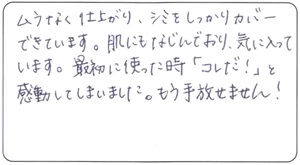 ムラなく仕上がり、シミをしっかりカバー
できています。肌にもなじんでおり、気に入って
います。最初に使った時「コレだ!」と
感動してしまいました。もう手放せません!